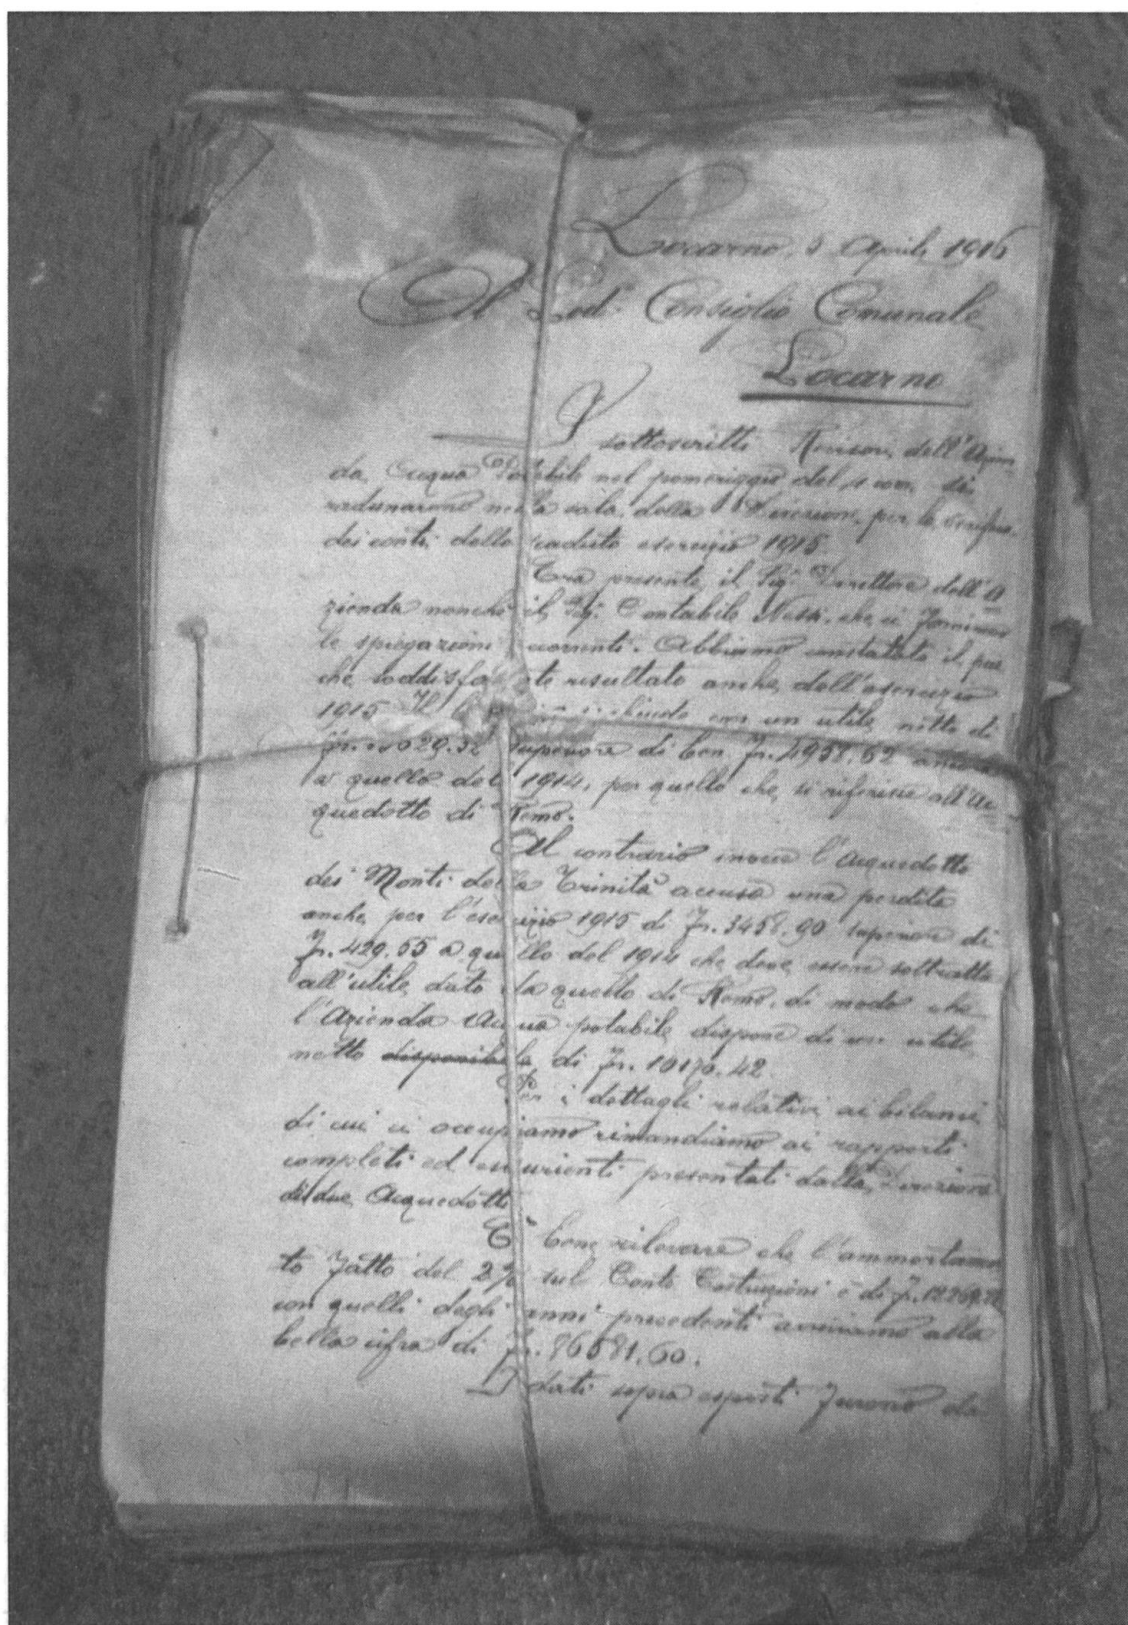 Locarno, 5 Aprile 1916
Al Lod. Consiglio Comunale
Locarno
I sottoscritti Revisori dell'Azien
da Acqua Potabile nel pomeriggio del 4 corr. si
radunarono nella sala della Direzione per la verifica
dei conti dello scaduto esercizio 1915.
Era presente il Sig. Direttore dell'A
zienda nonchè il Sig. Contabile Nessi che ci fornirono
le spiegazioni occorrenti. Abbiamo constatato il più
che soddisfacente risultato anche dell'esercizio
1915. Il si chiude con un utile netto di
superiore di ben Fr. 4958.62 ancora
a quello del 1914, per quello che si riferisce all'Ac
quedotto di Remo.
Al contrario invece l'Acquedotto
dei Monti della Trinità accusa una perdita
anche per l'esercizio 1915 di Fr. 3458.90 superiore di
Fr. 429.55 a quello del 1914 che deve essere sottratta
all'utile dato da quello di Remo, di modo che
l'Azienda Acqua potabile dispone di un utile
netto disponibile di Fr. 10170.42
Per i dettagli relativi ai bilanci
di cui ci occupiamo rimandiamo ai rapporti
completi ed esaurienti presentati dalla Direzione
dei due Acquedotti
E' bene rilevare che l'ammortamen
to fatto del 2% sul Conto Costruzioni è di
con quelli degli anni precedenti arriviamo alla
bella cifra di Fr. 86581.60.
I dati sopra esposti furono da